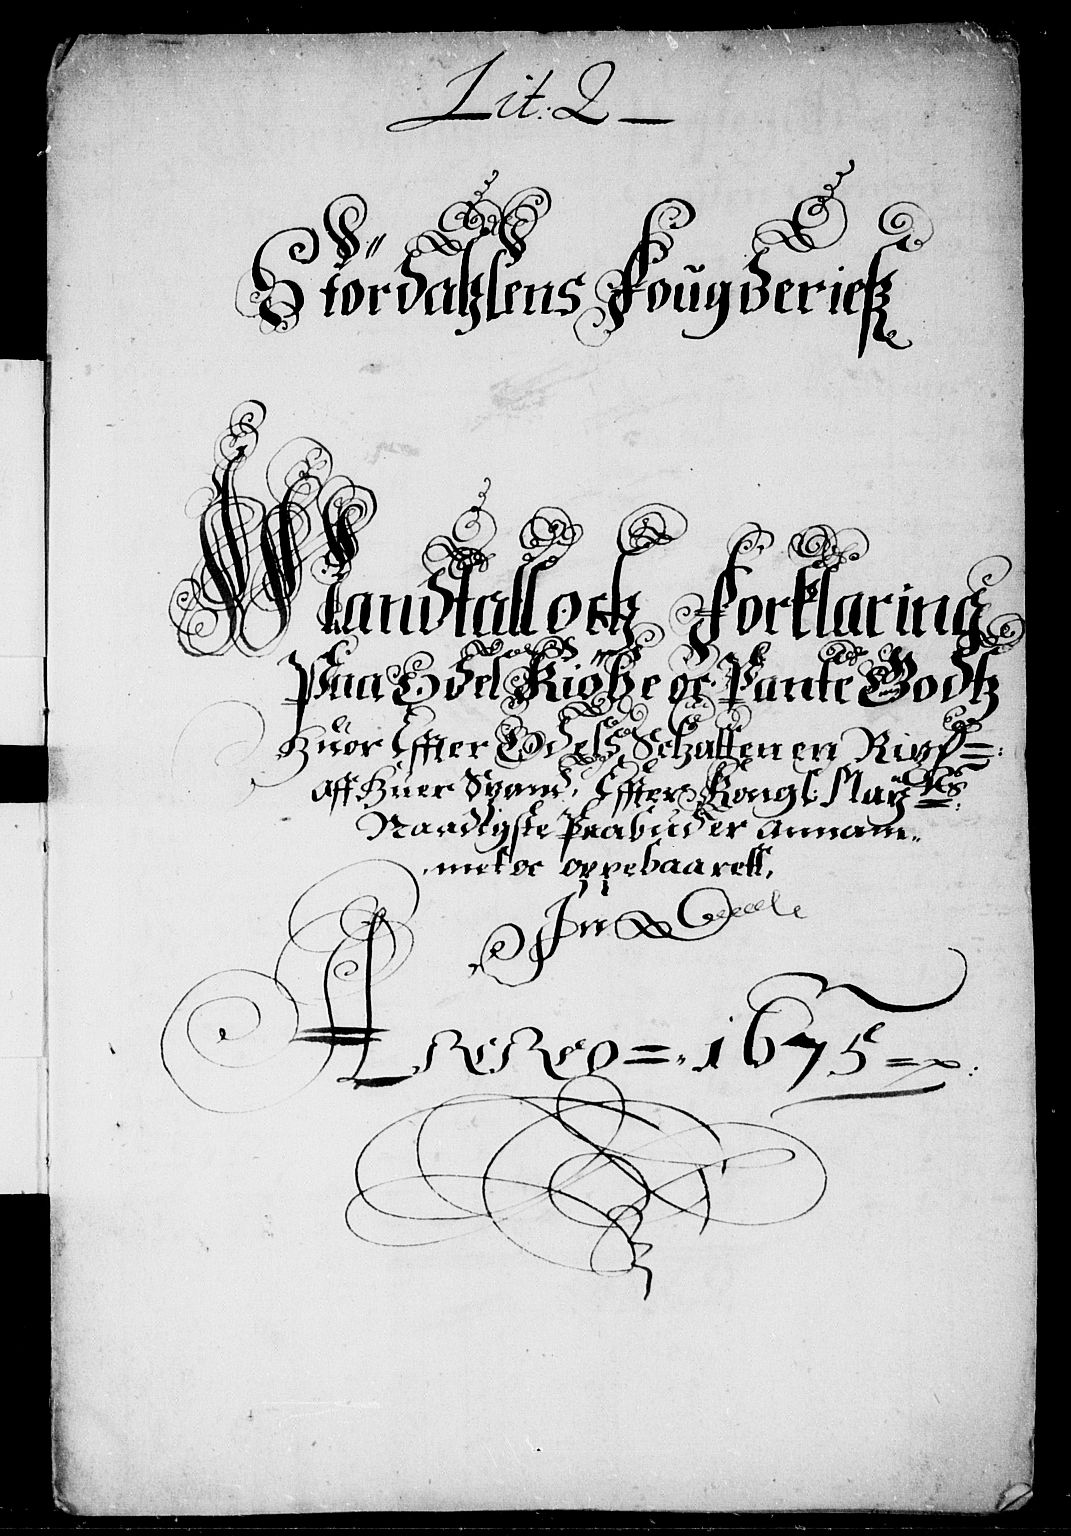 Lit: Q
Størdahlens Fougderietz
Mandtall och Forklaring
Paa Odel Kiøbe oc Pante Godtz
huor Effter Odels Schatten en Rixd=:
aff huer Spand, Effter Kongl: Mayts
Naadigste Paabud er annam=
met oc oppebaarett,
In
ANNO=. 1675=